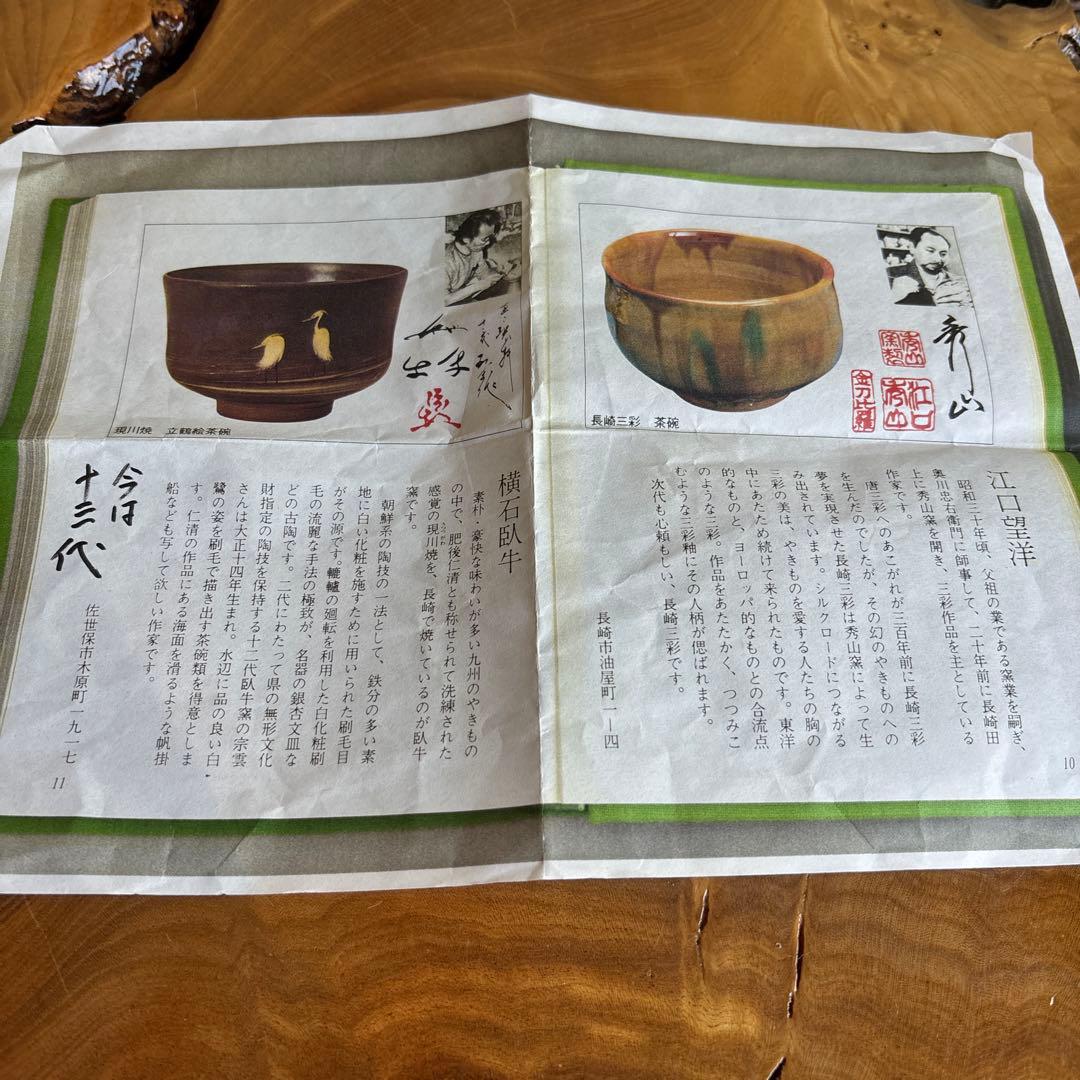 長崎三彩 茶碗
秀山
江口望洋
昭和三十年頃、父祖の業である窯業を嗣ぎ、
奥川忠右衛門に師事して、二十年前に長崎田
上に秀山窯を開き、三彩作品を主としている
作家です。
唐三彩へのあこがれが三百年前に長崎三彩
を生んだのでしたが、その幻のやきものへの
夢を実現させた長崎三彩は秀山窯によって生
み出されています。シルクロードにつながる
三彩の美は、やきものを愛する人たちの胸の
中にあたため続けて来られたものです。東洋
的なものと、ヨーロッパ的なものとの合流点
のような三彩。作品をあたたかく、つつみこ
むような三彩釉にその人柄が偲ばれます。
次代も心頼もしい、長崎三彩です。
長崎市油屋町一―四
10
現川焼 立鶴絵茶碗
横石臥牛
素朴・豪快な味わいが多い九州のやきもの
の中で、肥後仁清とも称せられて洗練された
感覚の現川焼を、長崎で焼いているのが臥牛
窯です。
朝鮮系の陶技の一法として、鉄分の多い素
地に白い化粧を施すために用いられた刷毛目
がその源です。轆轤の廻転を利用した白化粧刷
毛の流麗な手法の極致が、名器の銀杏文皿な
どの古陶です。二代にわたって県の無形文化
財指定の陶技を保持する十二代臥牛窯の宗雲
さんは大正十四年生まれ。水辺に品の良い白
鷺の姿を刷毛で描き出す茶碗類を得意としま
す。仁清の作品にある海面を滑るような帆掛
船なども写して欲しい作家です。
佐世保市木原町一九一七
今は
十三代
11